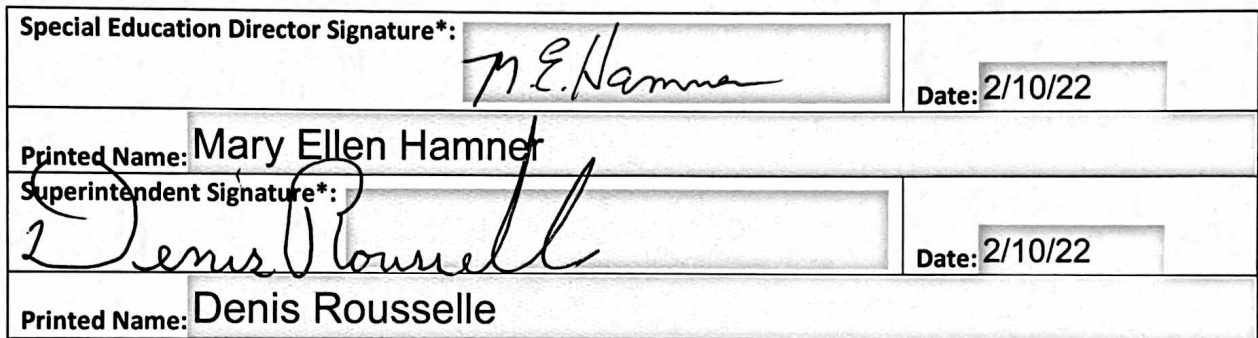 Special Education Director Signature*: M.E. Hamner
Date: 2/10/22
Printed Name: Mary Ellen Hamner
Superintendent Signature*: Denis Rousselle
Date: 2/10/22
Printed Name: Denis Rousselle